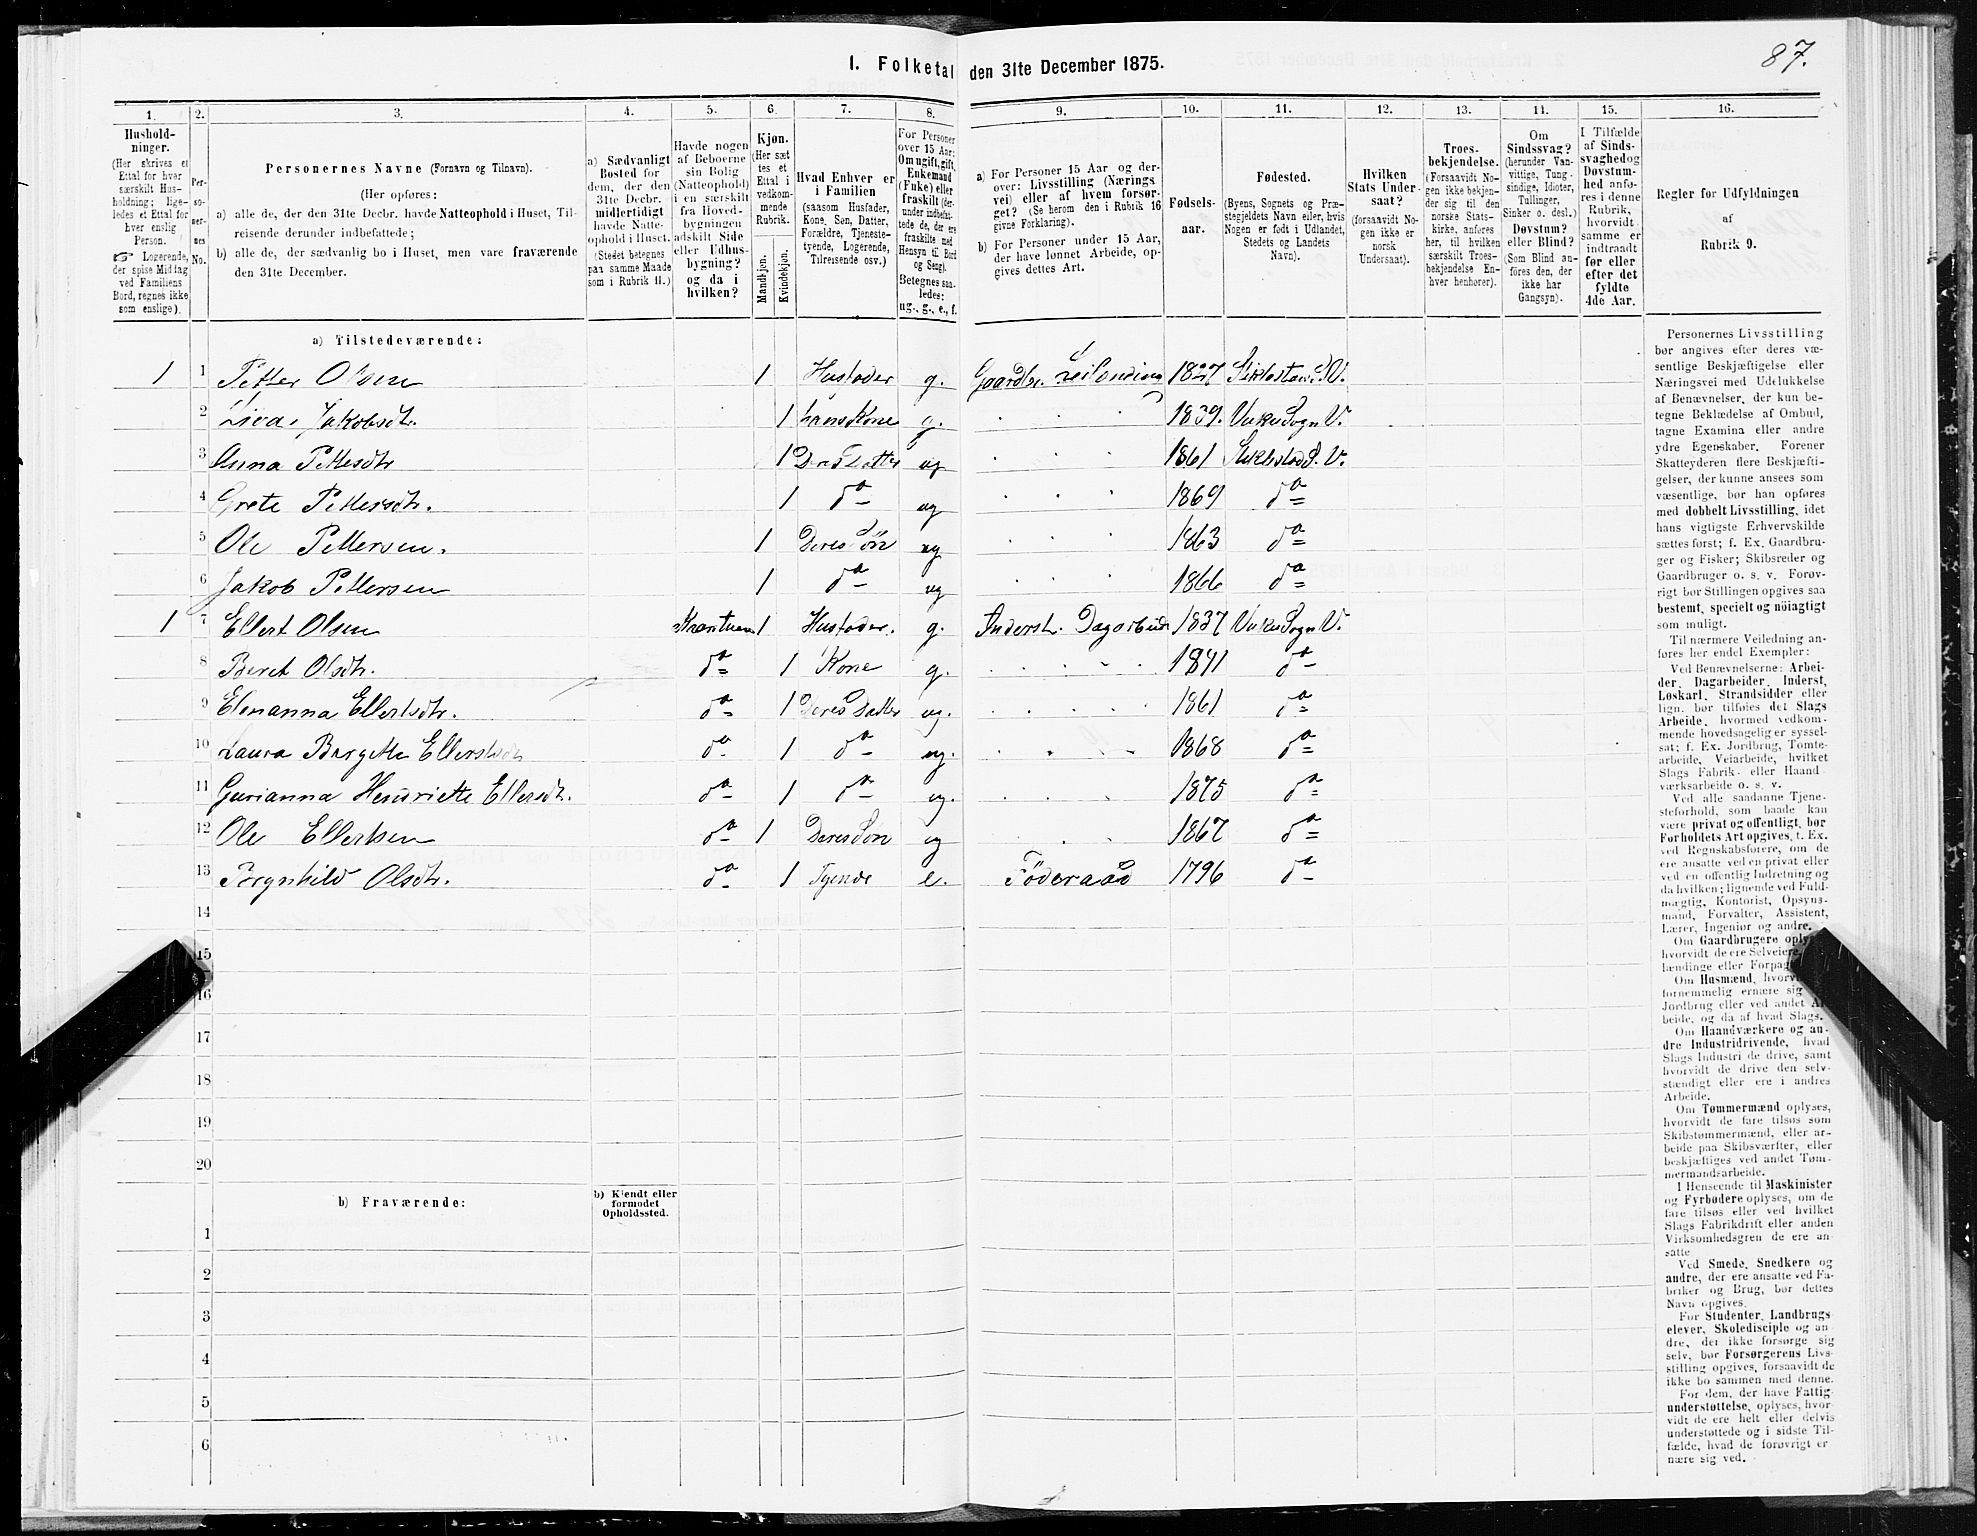 87.
I. Folketal den 31te December 1875.
1. 2. 3. 4. 5. 6. 7. 8. 9. 10. 11. 12. 13. 14. 15. 16.
Hushold-
ninger.
(Her skrives et
Ettal for hver
særskilt Hus-
holdning; lige-
ledes et Ettal for
hver enslig
Person.
☞ Logerende,
der spise Middag
ved Familiens
Bord, regnes ikke
som enslige).
Per-
so-
ner-
nes
No.
Personernes Navne (Fornavn og Tilnavn).
(Her opføres:
a) alle de, der den 31te Decbr. havde Natteophold i Huset, Til-
reisende derunder indbefattede;
b) alle de, der sædvanlig bo i Huset, men vare fraværende
den 31te December.
a) Sædvanligt
Bosted for
dem, der den
31te Decbr.
midlertidigt
havde Natte-
ophold i Huset.
(Stedet betegnes
paa samme Maade
som i Rubrik 11.)
Havde nogen
af Beboerne
sin Bolig
(Natteophold)
i en særskilt
fra Hoved-
bygningen
adskilt Side
eller Udhus-
bygning?
og da i
hvilken?
Kjøn.
(Her sæt-
tes et
Ettal i
vedkom-
mende
Rubrik.
Mandkjøn.
Kvindekjøn.
Hvad Enhver er
i Familien
(saasom Husfader,
Kone, Søn, Datter,
Forældre, Tjeneste-
tyende, Logerende,
Tilreisende osv.)
For Personer
over 15 Aar:
Om ugift, gift,
Enkemand
(Enke) eller
fraskilt (der-
under indbefat-
tede de, der ere
fraskilte med
Hensyn til Bord
og Seng).
Betegnes saa-
ledes:
ug., g., e., f.
a) For Personer 15 Aar og der-
over: Livsstilling (Nærings-
vei) eller af hvem forsør-
get? (Se herom den i Rubrik 16
givne Forklaring).
b) For Personer under 15 Aar,
der have lønnet Arbeide, op-
gives dettes Art.
Fødsels-
aar.
Fødested.
(Byens, Sognets og Præ-
stegjeldets Navn eller, hvis
Nogen er født i Udlandet,
Stedets og Landets
Navn).
Hvilken
Stats Under-
saat?
(forsaavidt No-
gen ikke er
norsk
Undersaat).
Troes-
bekjendelse.
(Forsaavidt No-
gen ikke bekjen-
der sig til den
norske Stats-
kirke, anføres
her, til hvilken
særskilt Troes-
bekjendelse En-
hver henhører).
Om
Sindssvag?
(herunder Van-
vittige, Tung-
sindige, Idioter,
Tullinger,
Sinker o. desl.)
Døvstum?
eller Blind?
(Som Blind an-
føres den, der
ikke har
Gangsyn).
I Tilfælde
af Sinds-
svaghed og
Døvstum-
hed anfø-
res i denne
Rubrik,
hvorvidt
samme er
indtraadt
før eller
efter det
fyldte
4de Aar.
Regler for Udfyldningen
af
Rubrik 9.
a) Tilstedeværende:
1 1 Petter Olsen 1 Husfader g. Gaardbr. 1827
2 Jakobsdtr. 1 g. 1839. Vuku Sogn V.
3 Anna 1 ug 1861 Stiklestad S. V.
4 Grete Pettersdtr. 1 do ug 1869 do
5 Ole Pettersen. 1 Deres Søn ug 1863 do
6 Jakob Pettersen 1 do ug 1866 do
1 7 Ellert Olsen 1 Husfader. g. Inderst. 1837 Vuku Sogn V.
8 Beret Olsdtr. do 1 Kone g. 1841 do
9 Elenanna Ellertsdtr. do 1 Deres Datter ug. 1861 do
10 Laura do 1 do ug. 1868 do
11 Gurianna Henriette do 1 do ug. 1875 do
12 Ole Ellertsen do 1 Deres Søn ug 1867 do
13 Brynhild Olsdtr. do 1 e. Føderaad 1796 do
14
15
16
17
18
19
20
b) Fraværende:
b) Kjendt eller
formodet
Opholdssted.
1
2
3
4
5
6
Personernes Livsstilling
bør angives efter deres væ-
sentlige Beskjæftigelse eller
Næringsvei med Udelukkelse
af Benævnelser, der kun be-
tegne Beklædelse af Ombud,
tagne Examina eller andre
ydre Egenskaber. Forener
Skatteyderen flere Beskjæfti-
gelser, der kunne ansees som
væsentlige, bør han opføres
med dobbelt Livsstilling, idet
hans vigtigste Erhvervskilde
sættes først; f. Ex. Gaardbru-
ger og Fisker; Skibsreder og
Gaardbruger o. s. v. Forøv-
rigt bør Stillingen opgives saa
bestemt, specielt og nøiagtigt
som muligt.
Til nærmere Veiledning an-
føres her endel Exempler:
Ved Benævnelserne: Arbei-
der, Dagarbeider, Inderst,
Løskarl, Strandsidder eller
lign. bør tilføies det Slags
Arbeide, hvormed vedkom-
mende hovedsagelig er syssel-
sat; f. Ex. Jordbrug, Tomte-
arbeide, Veiarbeide, hvilket
Slags Fabrik- eller Haand-
værksarbeide o. s. v.
Ved alle saadanne Tjene-
steforhold, som baade kan
være privat og offentligt, bør
Forholdets Art opgives, t. Ex.
ved Regnskabsførere, om de
ere ansatte ved en privat eller
ved en offentlig Indretning og
da hvilken; lignende ved Fuld-
mægtig, Kontorist, Opsyns-
mand, Forvalter, Assistent,
Lærer, Ingeniør og andre.
Om Gaardbrugere
hvorvidt de ere Selveiere,
lændinge eller
Om Husmænd,
fornemmelig ernære sig
Jordbrug eller ved andet
beide, og da af hvad Slags.
Om Haandværkere og an-
dre Industridrivende, hvad
Slags Industri de drive, samt
hvorvidt de drive den selv-
stændigt eller ere i andres
Arbeide.
Om Tømmermænd oplyses,
hvorvidt de fare tilsøs som
Skibstømmermænd, eller ar-
beide paa Skibsværfter, eller
beskjæftiges ved andet Tøm-
mermandsarbeide.
I Henseende til Maskinister
og Fyrbødere oplyses, om de
fare tilsøs eller ved hvilket
Slags Fabrikdrift eller anden
Virksomhedsgren de ere an-
satte.
Ved Smede, Snedkere og
andre, der ere ansatte ved Fa-
briker og Brug, bør dettes
Navn opgives.
For Studenter, Landbrugs-
elever, Skoledisciple og an-
dre, der ikke forsørge sig
selv, bør Forsørgerens Livs-
stilling opgives, forsaavidt de
ikke bo sammen med denne.
For dem, der have Fattig-
understøttelse, oplyses, hvor-
vidt de ere helt eller delvis
understøttede og i sidste Til-
fælde, hvad de forøvrigt er
nære sig ved.